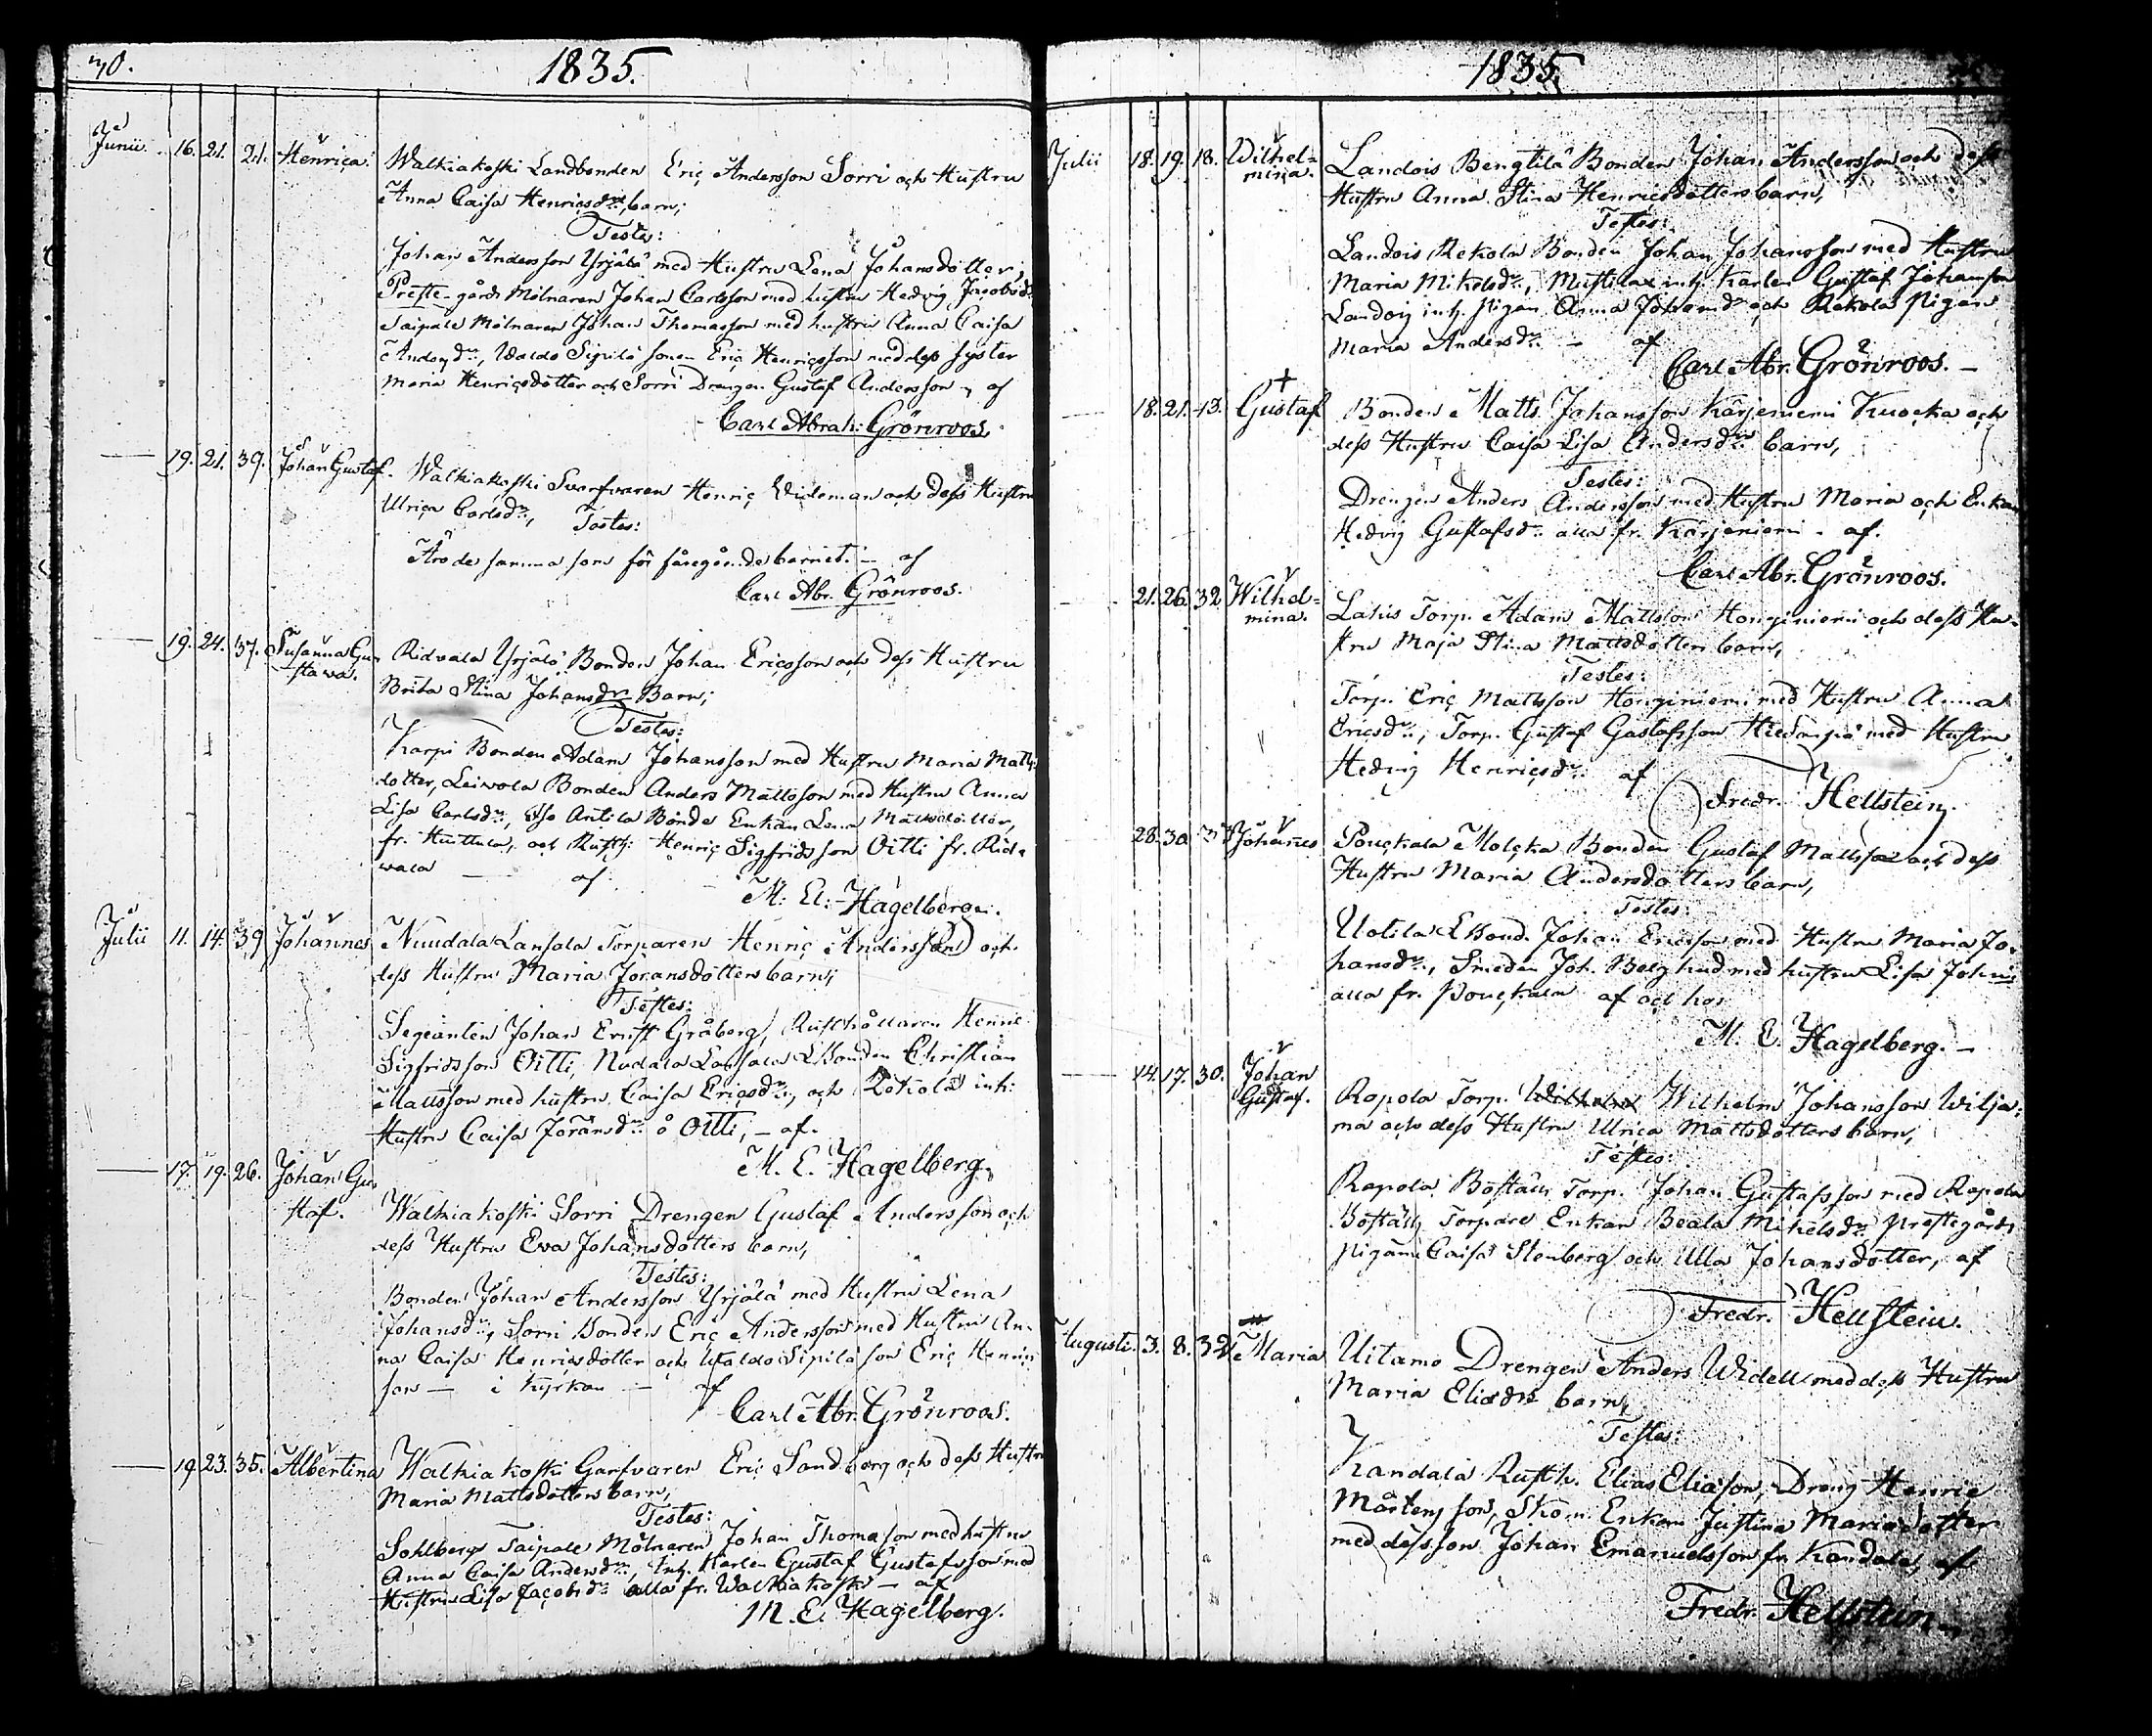 30.
1835.
Junii. 16. 21. 21. Henrica. Walkiakoski Landbonden Eric Andersson Sorri och Hustru
Anna Caisa Henricsdr, barn;
Testes:
Johan Andersson Yrjälä med Hustru Lena Johansdotter;
Preste-gårds Mölnaren Johan Carlsson med hustru Hedvig Jacobsdr
Taipale Mölnaren Johan Thomasson med hustru Anna Caisa
Andersdr, Waldo Sipilä sonen Eric Henricsson med dess syster
Maria Henricsdotter och Sorri Drengen Gustaf Andersson, af
Carl Abrah: Grönroos.
19. 21. 39. Johan Gustaf. Walkiakoski Svarfvaren Henric Wideman och dess Hustru
Ulrica Carlsdr,
Testes:
Äro de samma som för föregående barnet. – af
Carl Abr. Grönroos.
19. 24. 37. Susanna Gu-
stava. Ridvala Yrjälä Bonden Johan Ericsson och dess Hustru
Brita Stina Johansdr Barn;
Testes:
Karpi Bonden Adam Johansson med Hustru Maria Matts
dotter, Leivola Bonden Anders Mattsson med Hustru Anna
Lisa Carlsdr, Antila Bonde Enkan Lena Mattsdotter,
fr. Huittula, och Rusth: Henric Sigfridsson Oitti fr. Rid-
vala – af
M: E: Hagelberg.
Julii 11. 14. 39 Johannes Nuudala Lansala Torparen Henric Andersson och
dess Hustru Maria Joransdotters barn;
Testes:
Segeanten Johan Ernst Gråberg, Rusthållaren Henric
Sigfridsson Oitti, Nudala Lansala LBonden Christian
Mattsson med hustru Caisa Ericsdr, och inh:
Hustru Caisa Joransdr å Oitti, – af.
M. E. Hagelberg.
17. 19. 26. Johan Gu-
staf. Walkiakoski Sorri Drengen Gustaf Andersson och
dess Hustru Eva Johansdotters barn,
Testes:
Bonden Johan Andersson Yrjälä med Hustru Lena
Johansdr, Sorri Bonden Eric Andersson med Hustru An-
na Caisa Henricsdotter och Waldo Sipilä son Eric Henrics
son – i Kyrkan – af
Carl Abr. Grönroos.
19. 23. 35. Albertina Walkiakoski Garfvaren Eric Sandberg och dess Hustru
Maria Mattsdotters barn,
Testes:
Sohlberg Taipale Mölnaren Johan Thomason med hustru
Anna Caisa Andersdr, Inh. Karlen Gustaf Gustafsson med
Hustru Lisa Jacobsdr alla fr. Walkiakoski – af
M. E. Hagelberg.
1835.
Julii 18. 19. 18. Wilhel-
mina. Landois Bengtilä Bonden Johan Andersson och dess
Hustru Anna Stina Henricsdotters barn,
Testes:
Landois Rekola Bonden Johan Johansson med Hustru
Maria Mikelsdr, Mustila inh. Karlen Gustaf Johansson
inh. Pigan Anna Johansdr och Rekola Pigan
Maria Andersdr – af
Carl Abr. Grönroos. –
18. 21. 13. Gustaf Bonden Matts Johansson Kärjeniemi Kuocka och
dess Hustru Caisa Lisa Andersdrs barn,
Testes:
Drengen Anders Andersson med Hustru Maria och Enkan
Hedvig Gustafsdr alla fr. Kärjeniemi – af.
Carl Abr. Grönroos.
21. 26. 32 Wilhel-
mina. Torp. Adam Mattsson Honginiemi och dess Hu-
stru Maja Stina Mattsdotters barn,
Testes:
Torp. Eric Mattsson Honginiemi med Hustru Anna
Ericsdr, Torp. Gustaf Gustafsson med Hustru
Hedvig Henricsdr af
Fredr. Hellstein.
28. 30. Johannes Pouckala Molcka Bonden Gustaf Mattsson och dess
Hustru Maria Andersdotters barn,
Testes:
Uotila LBond. Johan Ericsson med Hustru Maria Jo-
hansdr, Smeden Joh. med hustru Lisa Johns
alla fr. Pouckala af och hos
M. E. Hagelberg. –
14. 17. 30. Johan
Gustaf. Rapola Torp. Wilhelm Wilhelm Johansson Wilja-
ma och dess Hustru Ulrica Mattsdotters barn,
Testes:
Rapola Boställs Torp. Johan Gustafsson med Rapola
Boställs Torpare Enkan Beata Mikelsdr, prestegårds
pigan Caisa Stenberg och Ulla Johansdotter, af
Fredr. Hellstein.
Augusti. 3. 8. 32 Maria Uitamo Drengen Anders Widell med dess Hustru
Maria Eliædr barn,
Testes:
Kandala Rusth. Elias Eliasson, Dreng Henric
Mårtensson, Enkan Justina Mariasdotter
med dess son Johan Emanuelsson fr. Kandala, af
Fredr. Hellstein